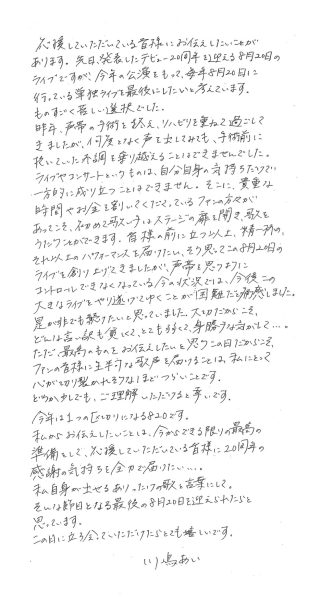 応援していただいている皆様にお伝えしたいことが
あります。先日、発表したデビュー20周年を迎える8月20日の
ライブですが、今年の公演をもって、毎年8月20日に
行っている単独ライブを最後にしたいと考えています。
ものすごく苦しい選択でした。
昨年、声帯の手術を終え、リハビリを重ねて過ごして
きましたが、何度となく声を出してみても、手術前に
抱いていた不調を乗り越えることはできませんでした。
ライブやコンサートというものは、自分自身の気持ちだけで
一方的に成り立つことはできません。そこに、貴重な
時間やお金を割いてくださっているファンの方々が
あってこそ、初めて歌い手はステージの扉を開き、歌を
うたうことができます。皆様の前に立つ以上、精一杯の、
それ以上のパフォーマンスを届けたい、そう思ってこの8月20日の
ライブを創り上げてきましたが、声帯を思うように
コントロールできなくなっている今の状況では、今後この
大きなライブをやり遂げてゆくことが困難だと痛感しました。
是が非でも続けたいと思っていました。大切だからこそ、
どんな言い訳も見にくくて、とても弱くて、身勝手な気がして…。
ただ、最高のものをお伝えしたいと思うこの日だからこそ、
ファンの皆様に半端な歌声を届けることは、私にとって
心がはり裂かれそうなほどつらいことです。
どうか少しでも、ご理解いただけると幸いです。
今年は1つの区切りになる820です。
私からお伝えしたいことは、今からできる限りの最高の
準備をして、応援していただいている皆様に20周年の
感謝の気持ちを全力で届けたい…。
私自身が出せるありったけの歌と言葉にして、
そんな節目となる最後の8月20日を迎えられたらと
思っています。
この日に立ち会っていただけたらとても嬉しいです。
川嶋あい